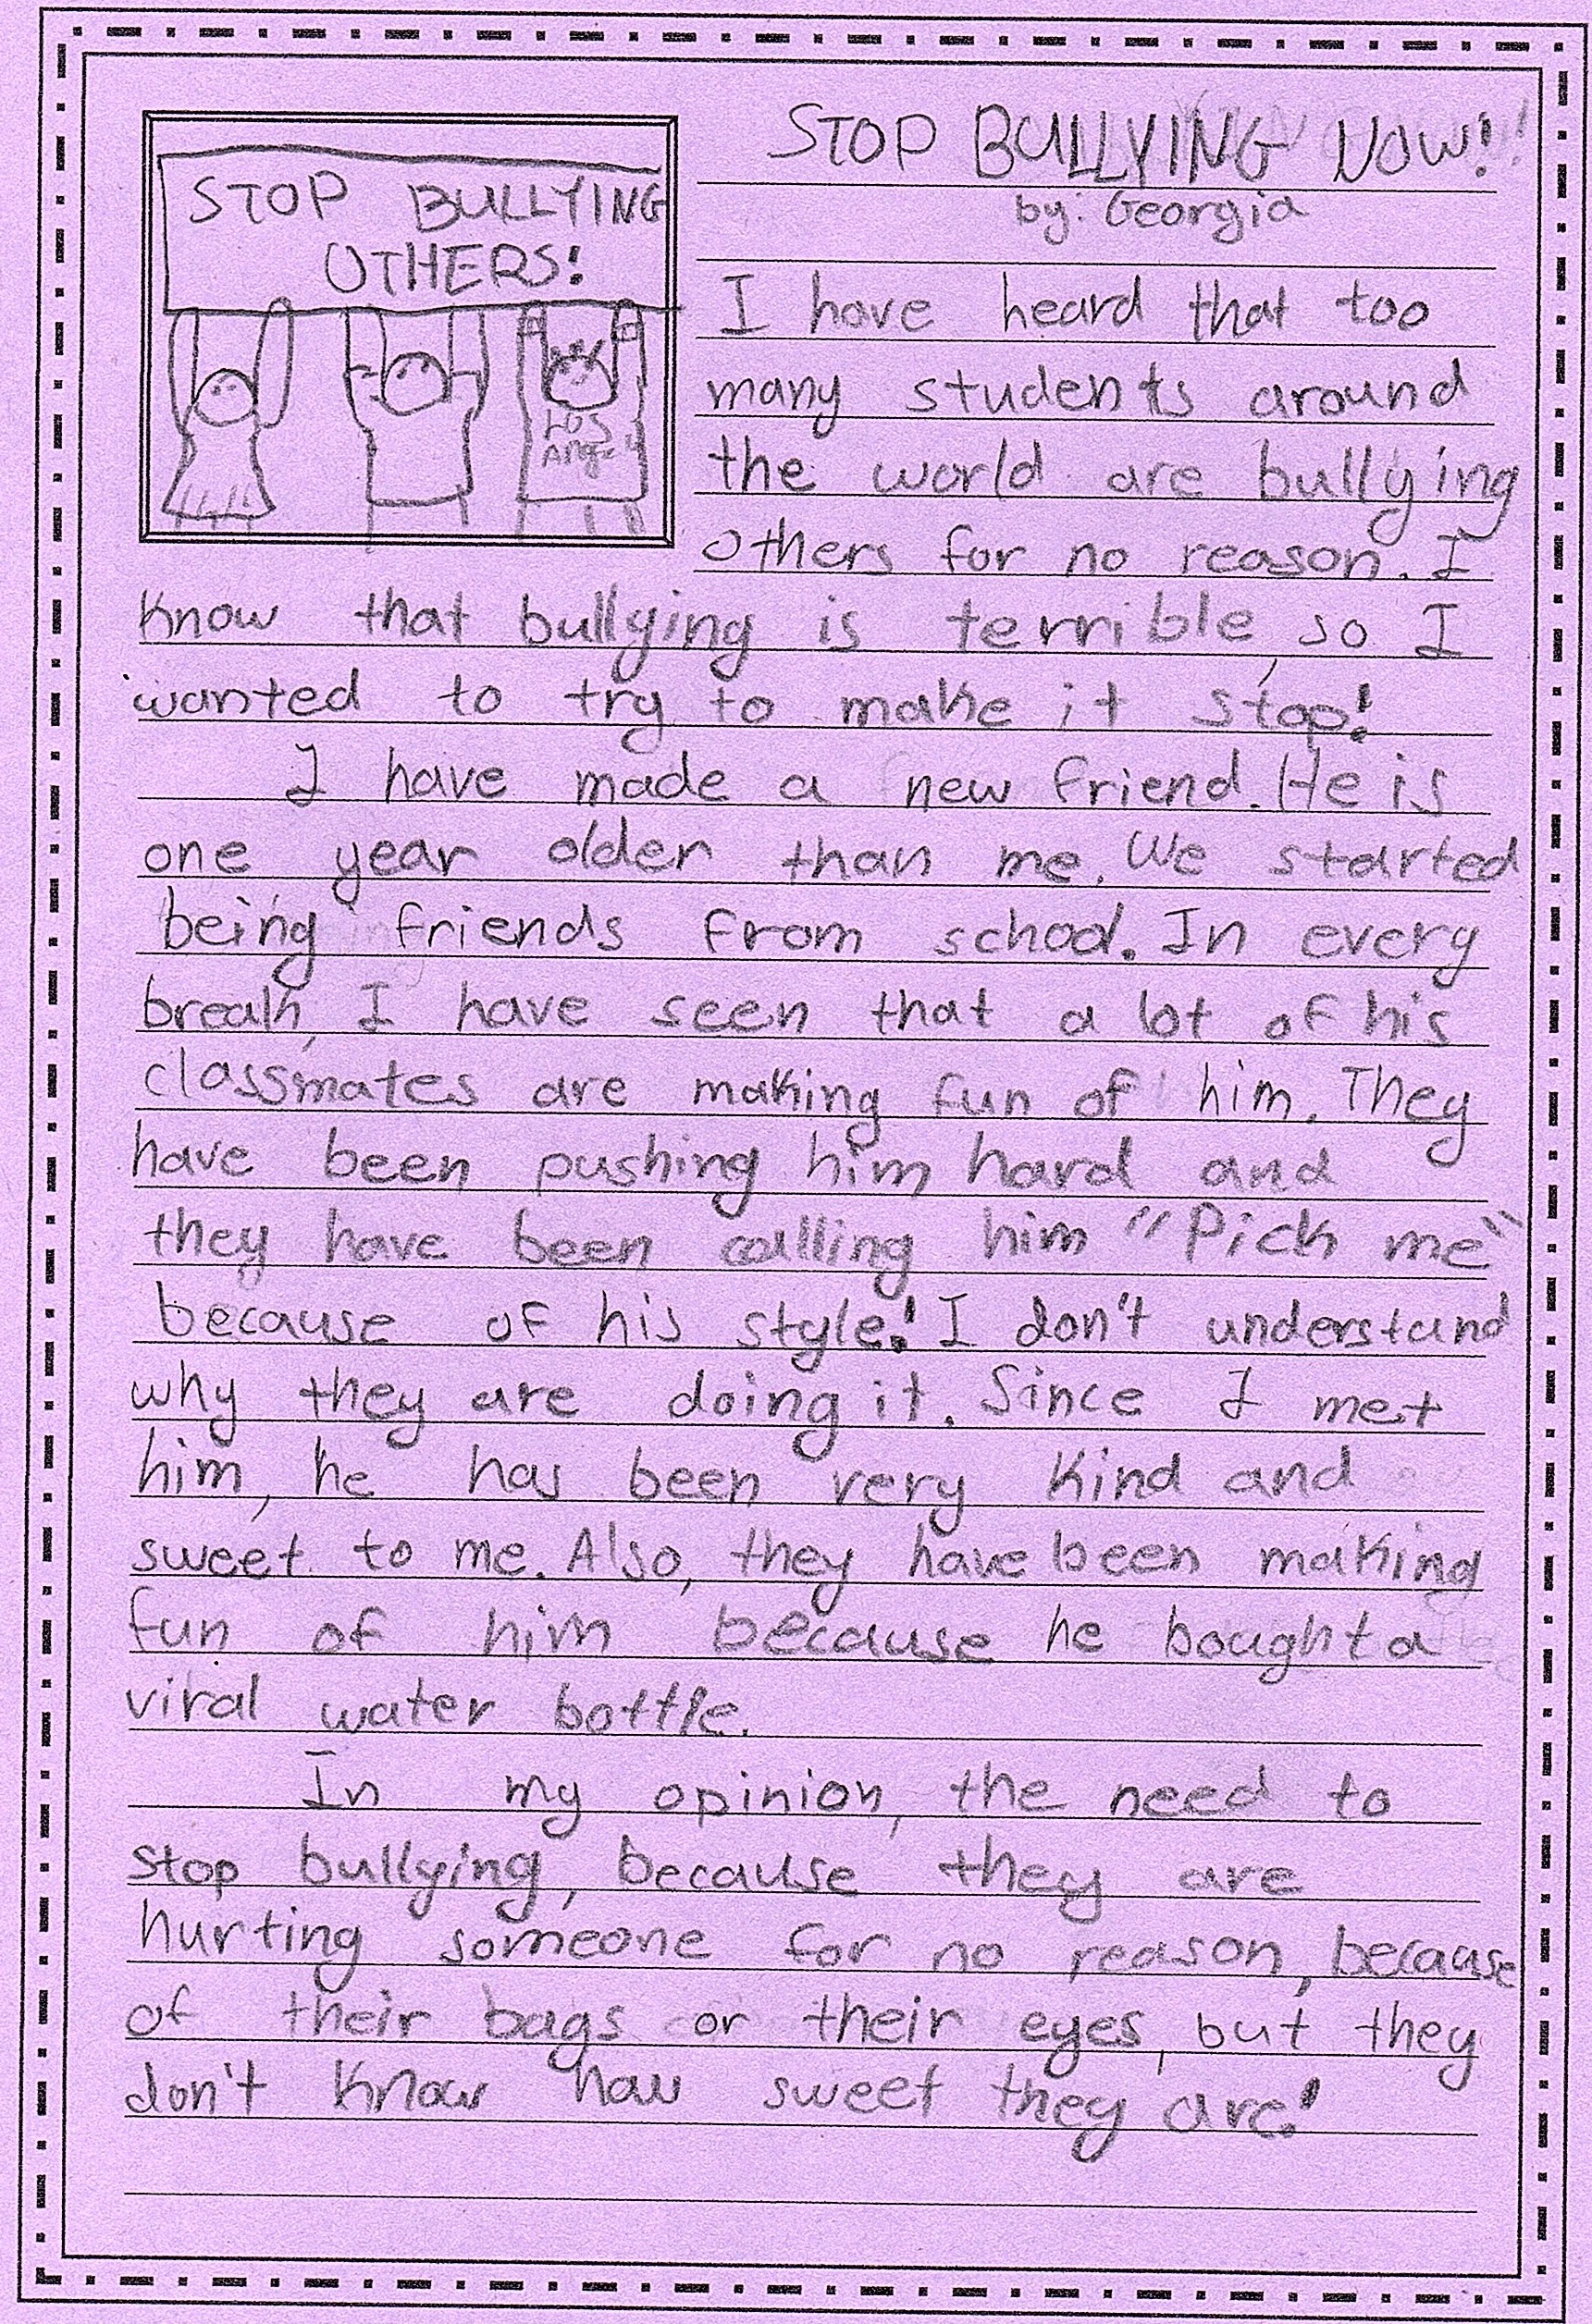 STOP BULLYING NOW!
by: Georgia
STOP BULLYING
OTHERS!
LOS
I have heard that too
many students around
the world are bullying
others for no reason. I
know that bullying is terrible, so I
wanted to try to make it stop!
I have made a new friend. He is
one year older than me. We started
being friends from school. In every
break, I have seen that a lot of his
classmates are making fun of him. They
have been pushing him hard and
they have been calling him "Pick me"
because of his style! I don't understand
why they are doing it. Since I met
him, he has been very kind and
sweet to me. Also, they have been making
fun of him because he bought a
viral water bottle.
In my opinion, the need to
stop bullying, because they are
hurting someone for no reason, because
of their bags or their eyes, but they
don't know how sweet they are!